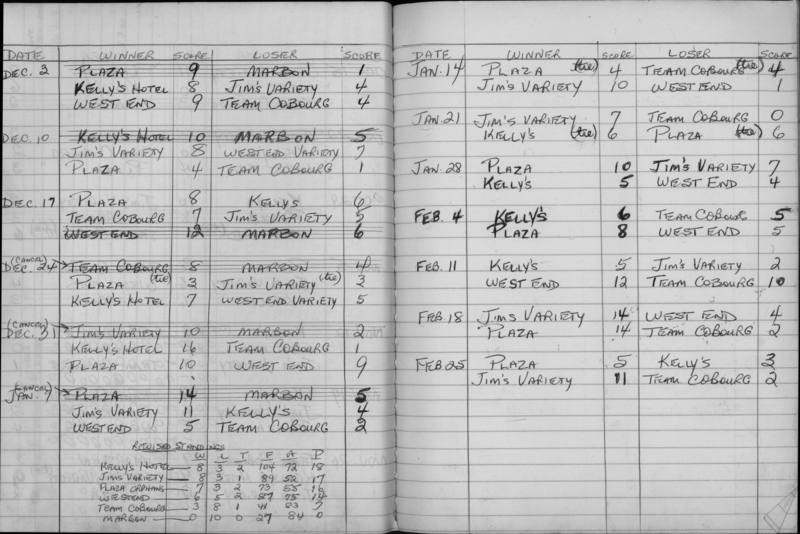 DATE WINNER SCORE LOSER SCORE
DEC. 3 PLAZA 9 MARBON 1
KELLY'S HOTEL 8 JIM'S VARIETY 4
WEST END 9 TEAM COBOURG 4
DEC. 10 KELLY'S HOTEL 10 MARBON 5
JIM'S VARIETY 8 WEST END VARIETY 7
PLAZA 4 TEAM COBOURG 1
DEC. 17 PLAZA 8 KELLY'S 6
TEAM COBOURG 7 JIM'S VARIETY 5
WEST END 12 MARBON 6
(CANCEL)
DEC. 24 TEAM COBOURG 8 MARBON 4
PLAZA (tie) 3 JIM'S VARIETY (tie) 3
KELLY'S HOTEL 7 WEST END VARIETY 5
(CANCEL)
DEC. 31 JIM'S VARIETY 10 MARBON 2
KELLY'S HOTEL 16 TEAM COBOURG 1
PLAZA 10 WEST END 9
(CANCEL)
JAN. 7 PLAZA 14 MARBON 5
JIM'S VARIETY 11 KELLY'S 4
WEST END 5 TEAM COBOURG 2
REVISED STANDINGS
W L T F A P
KELLY'S HOTEL — 8 3 2 104 72 18
JIM'S VARIETY — 8 3 1 89 52 17
PLAZA ORPHANS — 7 3 2 73 55 16
WESTEND — 6 5 2 87 75 14
TEAM COBOURG — 3 8 1 41 83 7
MARBON — 0 10 0 27 84 0
DATE WINNER SCORE LOSER SCORE
JAN. 14 PLAZA (tie) 4 TEAM COBOURG (tie) 4
JIM'S VARIETY 10 WEST END 1
JAN. 21 JIM'S VARIETY 7 TEAM COBOURG 0
KELLY'S (tie) 6 PLAZA (tie) 6
JAN. 28 PLAZA 10 JIM'S VARIETY 7
KELLY'S 5 WEST END 4
FEB. 4 KELLY'S 6 TEAM COBOURG 5
PLAZA 8 WEST END 5
FEB. 11 KELLY'S 5 JIM'S VARIETY 2
WEST END 12 TEAM COBOURG 10
FEB. 18 JIM'S VARIETY 14 WEST END 4
PLAZA 14 TEAM COBOURG 2
FEB. 25 PLAZA 5 KELLY'S 3
JIM'S VARIETY 11 TEAM COBOURG 2